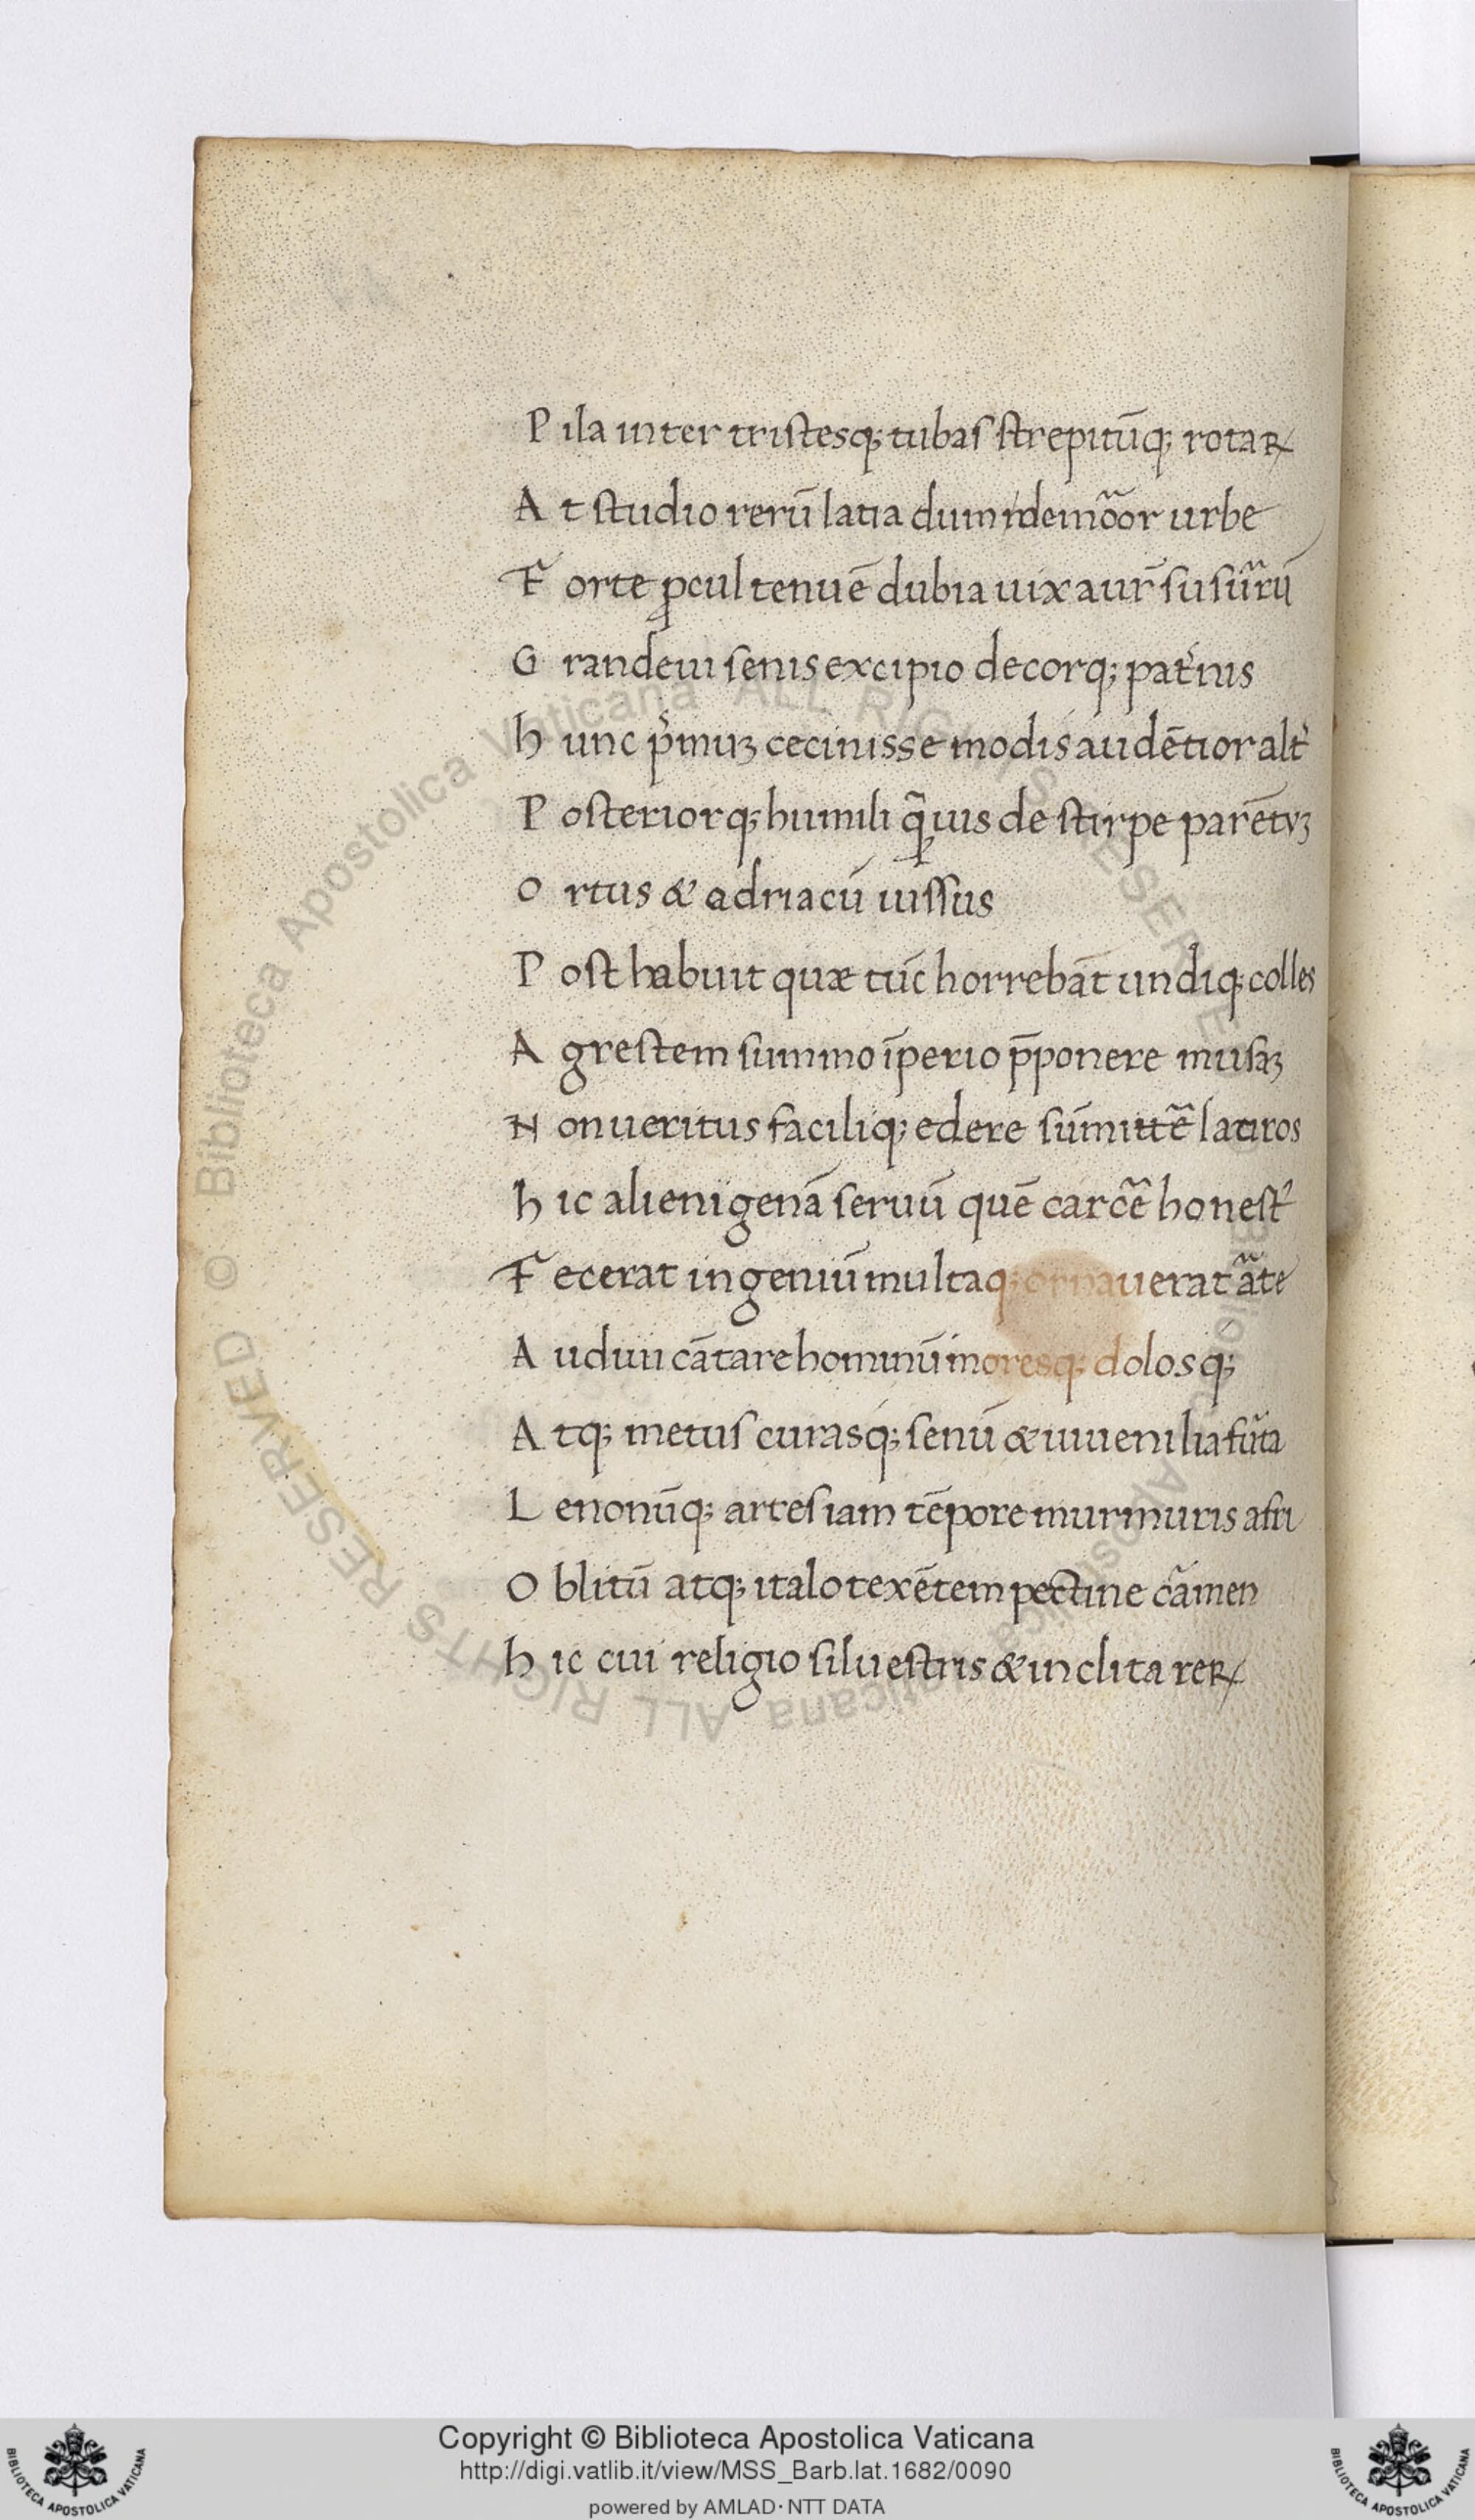 P ila inter tristesq; tubas strepitūq; rotaꝝ
A t studio rerū latia dum idem oror urbe
F orte ꝓcul tenuē dubia uix aur̄ susurrū
G randeui senis excipio decorq; pat̓nis
H unc pͥmuꝫ cecinisse modis audētior alt̓
P osteriorq; humili qᷓuis de stirpe parētuꝫ
O rtus & adriacū iussus
P ost habuit quæ tūc horrebāt undiq; colles
A grestem summo īperio p̄ponere musaꝫ
N on ueritus faciliq; edere sūmittē latiros
H ic alienigenā seruū quē carcē honest᾽
F ecerat ingeniū multaq; ornauerat ᷓate
A udiui cātare hominū moresq; dolosq;
A tq; metus curasq; senū & iuuenilia fuᷓta
L enonūq; artes iam tēpore murmuris afri
O blitū atq; italo texētem pectine cᷓamen
H ic cui religio siluestris & inclita reꝝ
© Biblioteca Apostolica Vaticana ALL RIGHTS RESERVED
Copyright © Biblioteca Apostolica Vaticana
http://digi.vatlib.it/view/MSS_Barb.lat.1682/0090
powered by AMLAD·NTT DATA
BIBLIOTECA APOSTOLICA VATICANA
BIBLIOTECA APOSTOLICA VATICANA